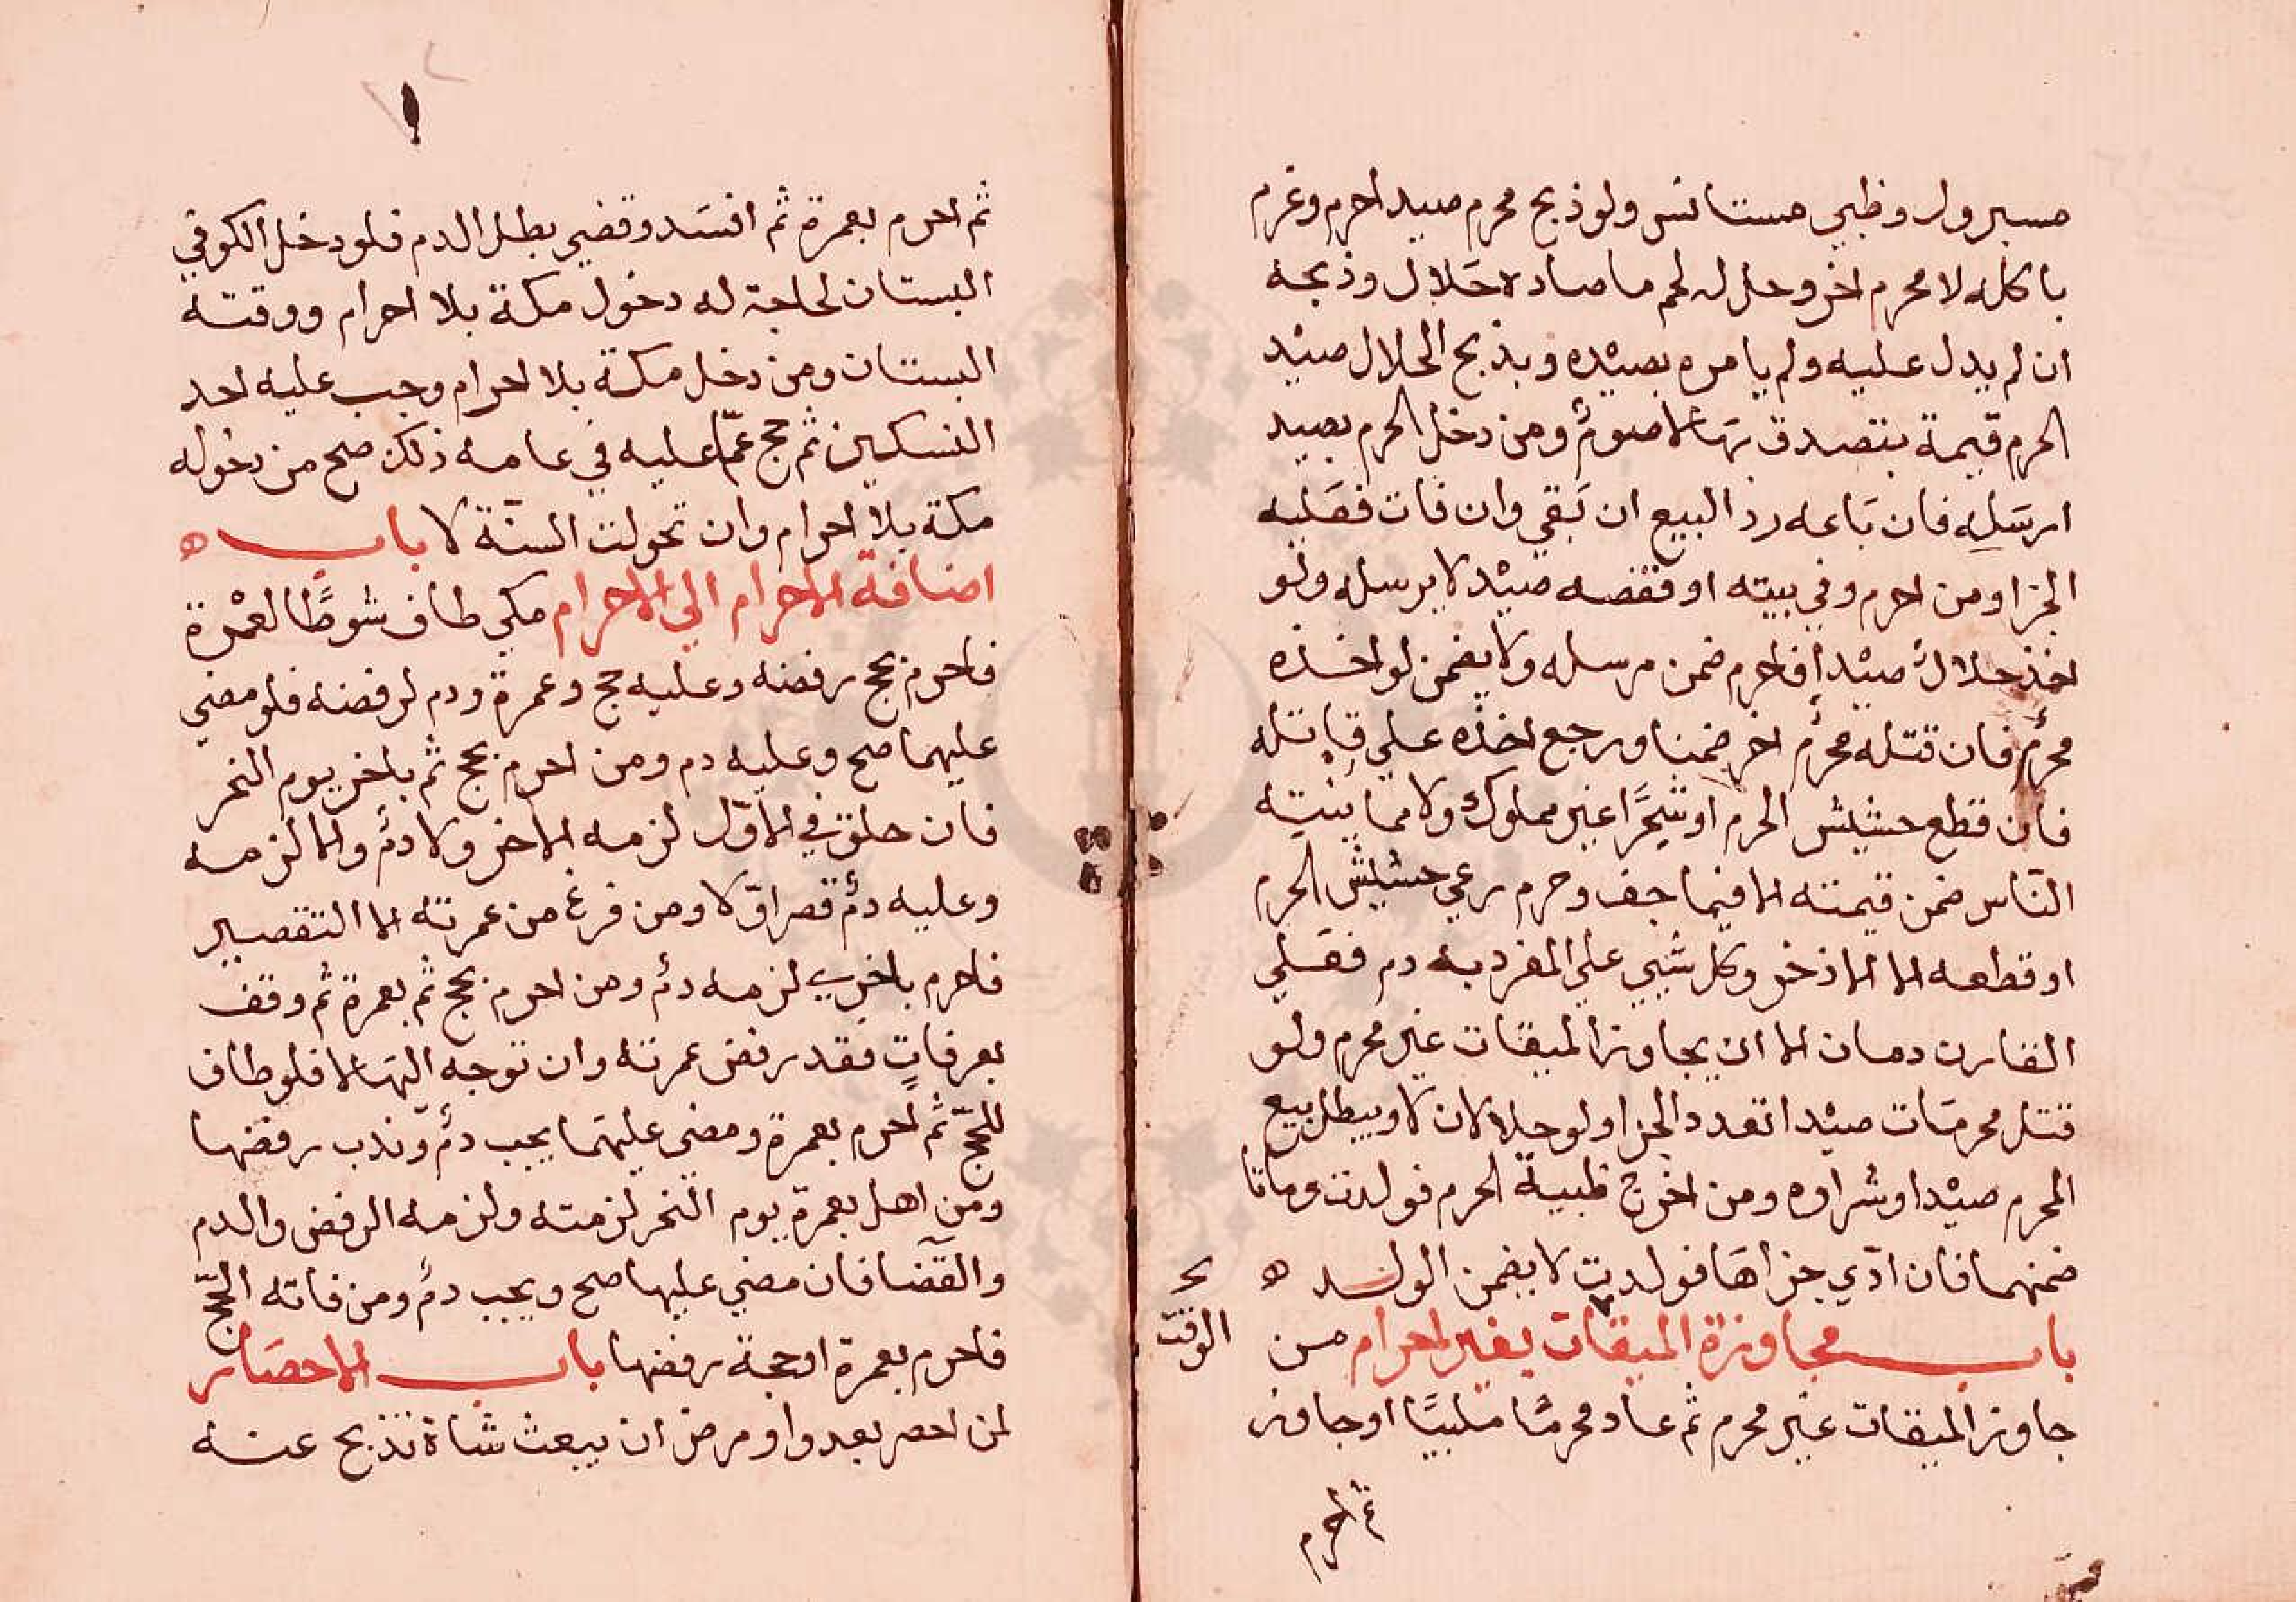 مسرول وظبي مستانس ولو ذبح محرم صيدا حرم وغرم
باكله لا محرم اخر وحل له لحم ما صاده حلال وذبحه
ان لم يدل عليه ولم يامره بصيده وبذبح الحلال صيد
الحرم قيمة يتصدق بها لا صوم ومن دخل الحرم بصيد
ارسله فان باعه رد البيع ان بقي وان فات فعليه
الجزا ومن احرم وفي بيته او قفصه صيد لا يرسله ولو
اخذ حلال صيدا فاحرم ضمن مرسله ولا يضمن لو اخذه
محرم فان قتله محرم اخر ضمنا ورجع اخذه علي قاتله
فان قطع حشيش الحرم او شجرا غير مملوك ولا مما ينبته
الناس ضمن قيمته الا فيما جف وحرم رعي حشيش الحرم
او قطعه الا الاذخر وكل شيي علي المفرد به دم فعلي
القارن دمان الا ان يجاوز الميقات غير محرم ولو
قتل محرمان صيدا تعدد الجزا ولو حلالان لا ويبطل بيع
المحرم صيدا وشراوه ومن اخرج ظبية الحرم فولدت وماتا
ضمنهما فان ادي جزاها فولدت لا يضمن الولد ه
باب مجاوزة الميقات بغير احرام من
الوقت
جاوز الميقات غير محرم ثم عاد محرما ملبيا او جاوز
ثم احرم
١
ثم احرم بعمرة ثم افسد وقضي بطل الدم فلو دخل الكوفي
البستان لحاجة له دخول مكة بلا احرام ووقته
البستان ومن دخل مكة بلا احرام وجب عليه احد
النسكين ثم حج عما عليه في عامه ذلك صح من دخوله
مكة بلا احرام وان تحولت السنة لا باب ه
اضافة الاحرام الي الاحرام مكي طاف شوطا لعمرة
فاحرم بحج رفضه وعليه حج وعمرة ودم لرفضه فلو مضي
عليهما صح وعليه دم ومن احرم بحج ثم باخر يوم النحر
فان حلق في الاول لزمه الاخر ولا دم والا لزمه
وعليه دم قصر اولا ومن فرغ من عمرته الا التقصير
فاحرم باخري لزمه دم ومن احرم بحج ثم بعمرة ثم وقف
بعرفات فقد رفض عمرته وان توجه اليها لا فلو طاف
للحج ثم احرم بعمرة ومضي عليهما يجب دم وندب رفضها
ومن اهل بعمرة يوم النحر لزمته ولزمه الرفض والدم
والقضا فان مضي عليها صح ويجب دم ومن فاته الحج
فاحرم بعمرة او حجة رفضها باب الاحصار
لمن احصر بعدو او مرض ان يبعث شاة تذبح عنه